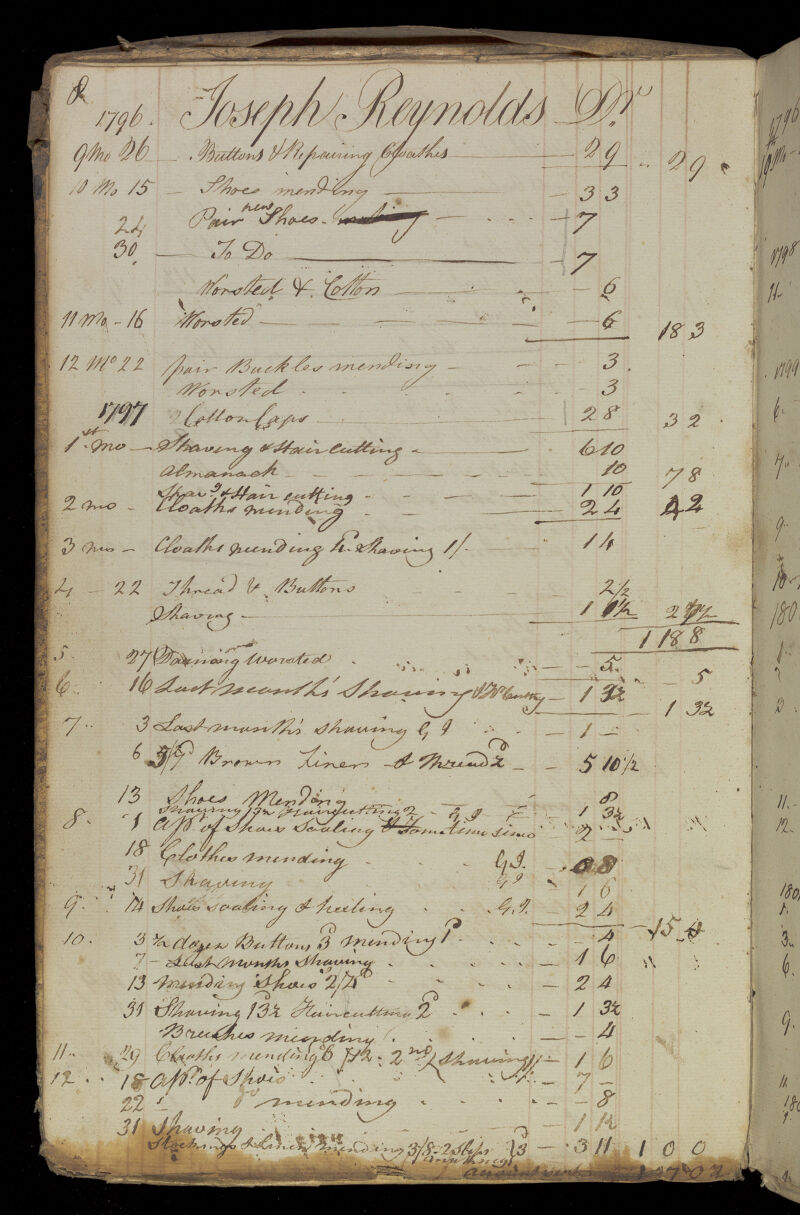 8
1796. Joseph Reynolds Dr
9 Mo 26 - Buttons & Repairing Cloathes - 2 9 " 2 9
10 Mo 15 - Shoes mending - 3 3
24 Pair new Shoes - 7
30 - To Do - 7
Worsted & Cotton - 6
11 Mo - 16 Worsted - 6 18 3
12 Mo 22 pair Buckles mending - 3
Worsted - 3
1797 Cotton Caps 2 8 3 2
1st mo - Shaving & Haircutting - 6 10
Almanack - 10 7 8
Shavg & Hair cutting - 1 10
2 mo - Cloaths mending - 2 4 4 2
3 mo - Cloaths mending & Shaving 1/- 1 4
4 - 22 Thread & Buttons 2½
Shaving - 1
1 18 8
5 27 worsted - 5 5
6 16 Last month's Shaving - 1 3½ 1 3½
7 3 Last month's shaving G I - 1 -
6 Brown Linen & thread 2d - 5 10½
13 Shoes Mending 8
Shaving 13½ Haircutting 2 - G I - 1 3½
8 1 a pr of Shoes Soaling sometime since 2 -
18 Clothes mending G I 8
31 Shaving G I 1 6
9 14 Shoes soaling & heeling G I 2 4 15
10 3 ½ dozen Buttons 3d mending 1d - 4
7 - Last months Shaving - 1 6
13 mending Shoes - 2 4
31 Shaving 13½ Haircutting 2d - 1 3½
Breeches mending - 4
11 29 Cloaths mending 6 Shaving 1/- 1 6
12 18 a pr of Shoes - 7 -
22 Do mending - 8
31 Shaving - 1 1½
Stockings & Linen mending 3/8 - 3 11 1 0 0